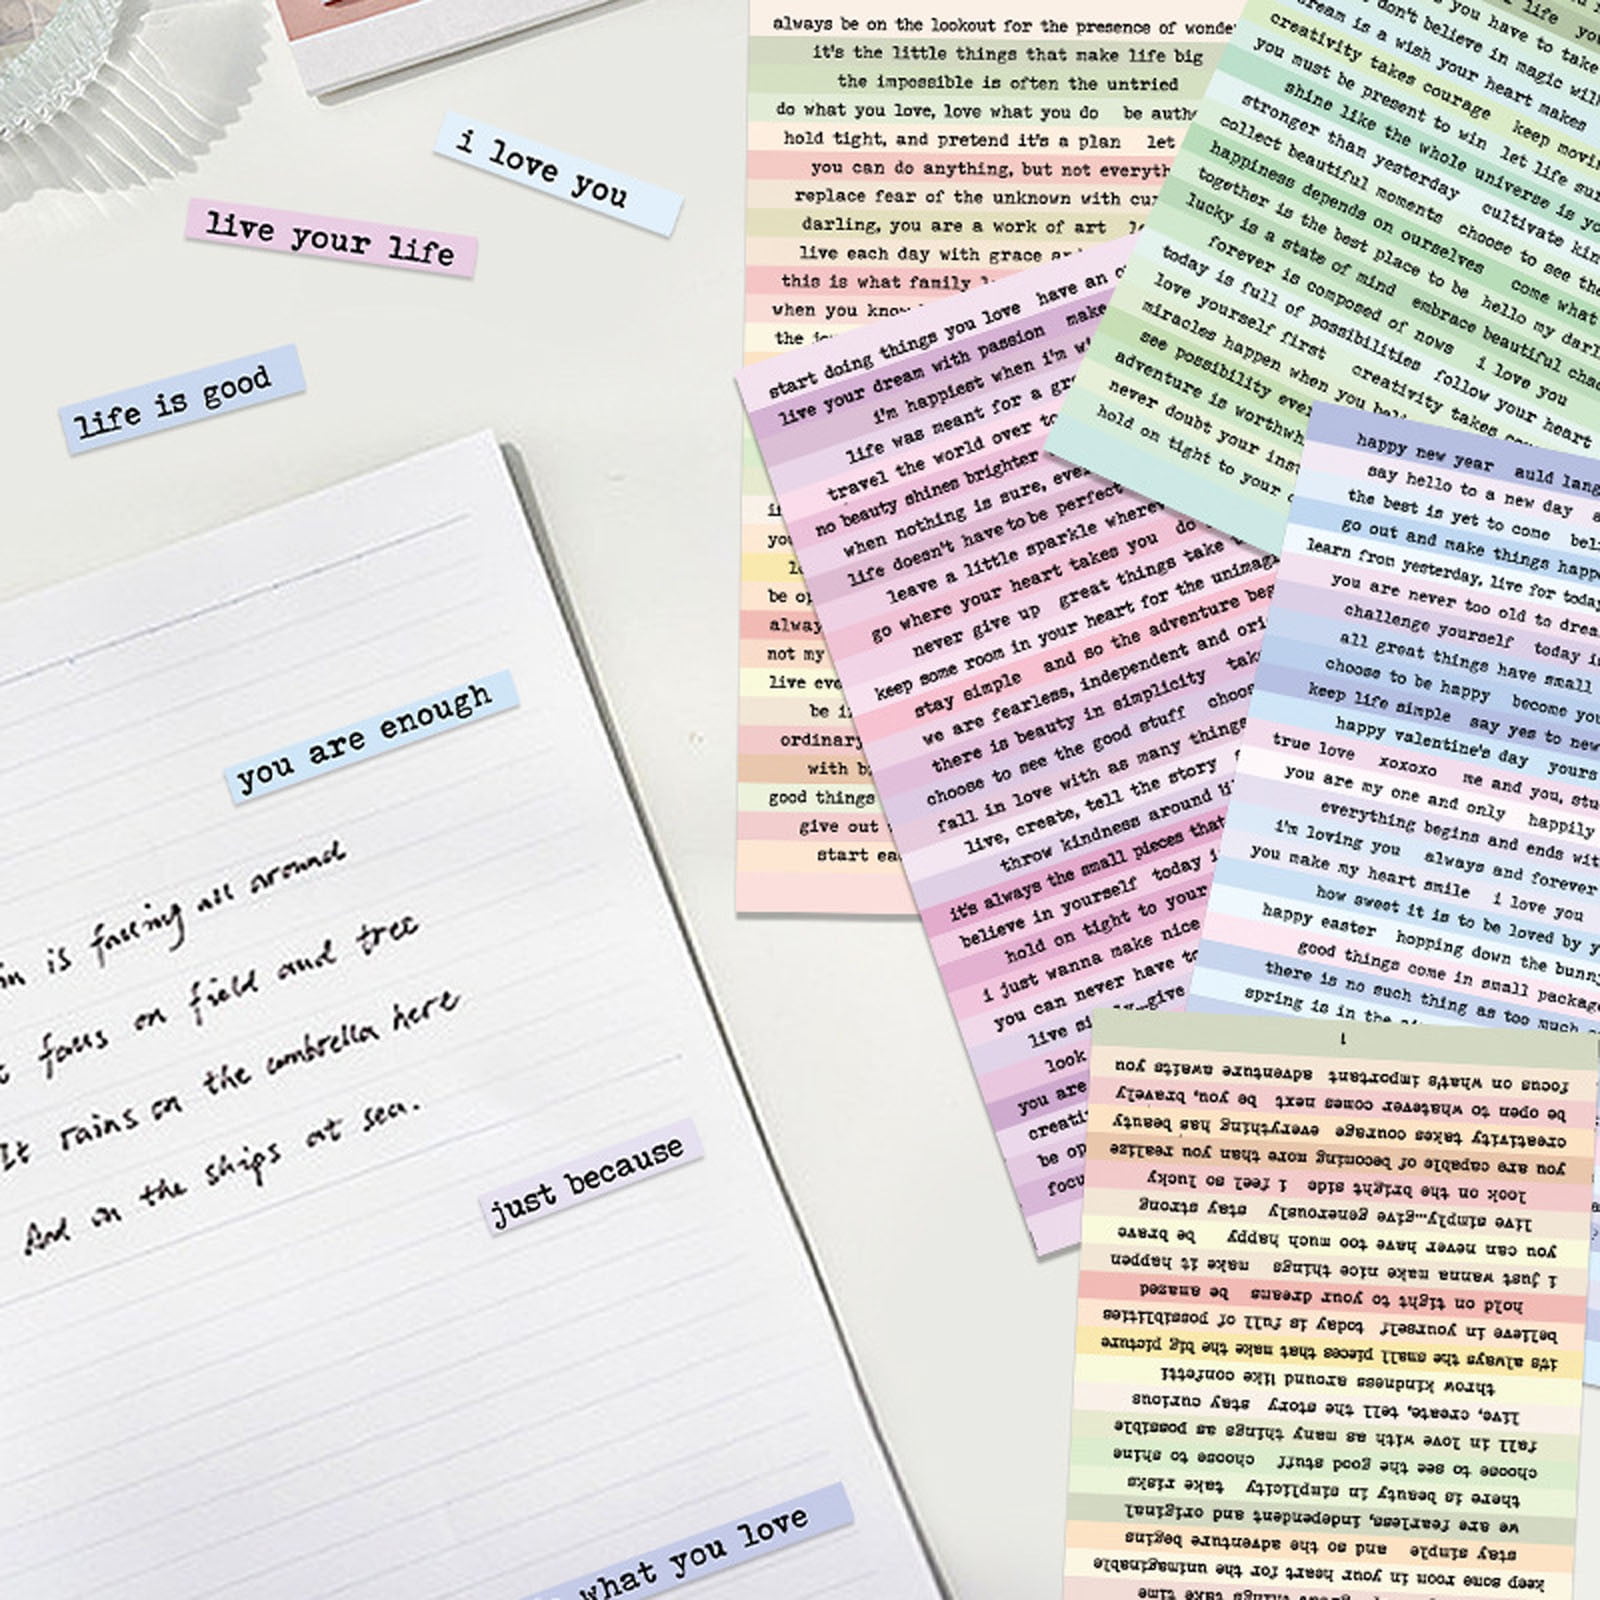 i love you
live your life
life is good
you are enough
is falling all around
on field and tree
It rains on the umbrella here
And on the ships at sea.
just because
what you love
always be on the lookout for the presence of
it's the little things that make life big
the impossible is often the untried
do what you love, love what you do be
hold tight, and pretend it's a plan let
you can do anything, but not
replace fear of the unknown with
darling, you are a work of art
live each day with grace
this is what family
when you
the
be
not my
live
be
ordinary
with
good things
give out
start
start doing things you love have an
live your dream with passion make
i'm happiest when i'm
life was meant for a
travel the world over
no beauty shines brighter
when nothing is sure,
life doesn't have to be perfect
leave a little sparkle
go where your heart takes you do
never give up great things take
keep some room in your heart for the
stay simple and so the adventure
we are fearless, independent and
there is beauty in simplicity
choose to see the good stuff
fall in love with as many things
live, create, tell the story
throw kindness around
it's always the small pieces that
believe in yourself today
hold on tight to your
i just wanna make nice
you can never have
live
look
you are
be
life
you have to take
don't believe in magic
dream is a wish your heart makes
creativity takes courage keep
you must be present to win let life
shine like the whole universe is
stronger than yesterday cultivate
collect beautiful moments choose to see
happiness depends on ourselves come what
together is the best place to be hello my
lucky is a state of mind embrace beautiful
forever is composed of nows i love you
today is full of possibilities follow your heart
love yourself first creativity takes
miracles happen when you
see possibility
adventure is
never doubt your
hold on tight to your
happy new year auld
say hello to a new day
the best is yet to come
go out and make things
learn from yesterday, live for
you are never too old to
challenge yourself today
all great things have small
choose to be happy become
keep life simple say yes to
happy valentine's day yours
true love xoxoxo me and you,
you are my one and only happily
everything begins and ends
i'm loving you always and forever
you make my heart smile i love you
how sweet it is to be loved by
happy easter hopping down the
good things come in small
there is no such thing as too much
spring is in the
time
keep some room in your heart for the unimaginable
stay simple and so the adventure begins
we are fearless, independent and original
there is beauty in simplicity take risks
choose to see the good stuff choose to shine
fall in love with as many things as possible
live, create, tell the story stay curious
throw kindness around like confetti
it's always the small pieces that make the big picture
believe in yourself today is full of possiblities
hold on tight to your dreams be amazed
i just wanna make nice things make it happen
you can never have too much happy be brave
live simply...give generously stay strong
look on the bright side i feel so lucky
you are capable of becoming more than you realize
creativity takes courage everything has beauty
be open to whatever comes next be you, bravely
focus on what's important adventure awaits you
1